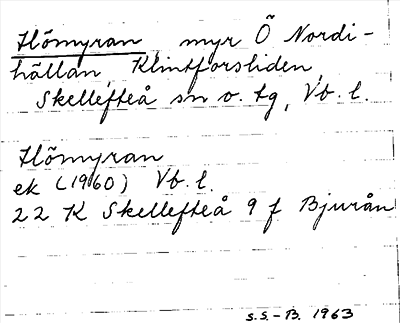 Hömyran, myr Ö Nordi-
hällan, Klintforsliden,
Skellefteå sn o. tg, Vb. l.
Hömyran
ek (1960) Vb. l.
22 K Skellefteå 9 f Bjurån
S.S.-B. 1963